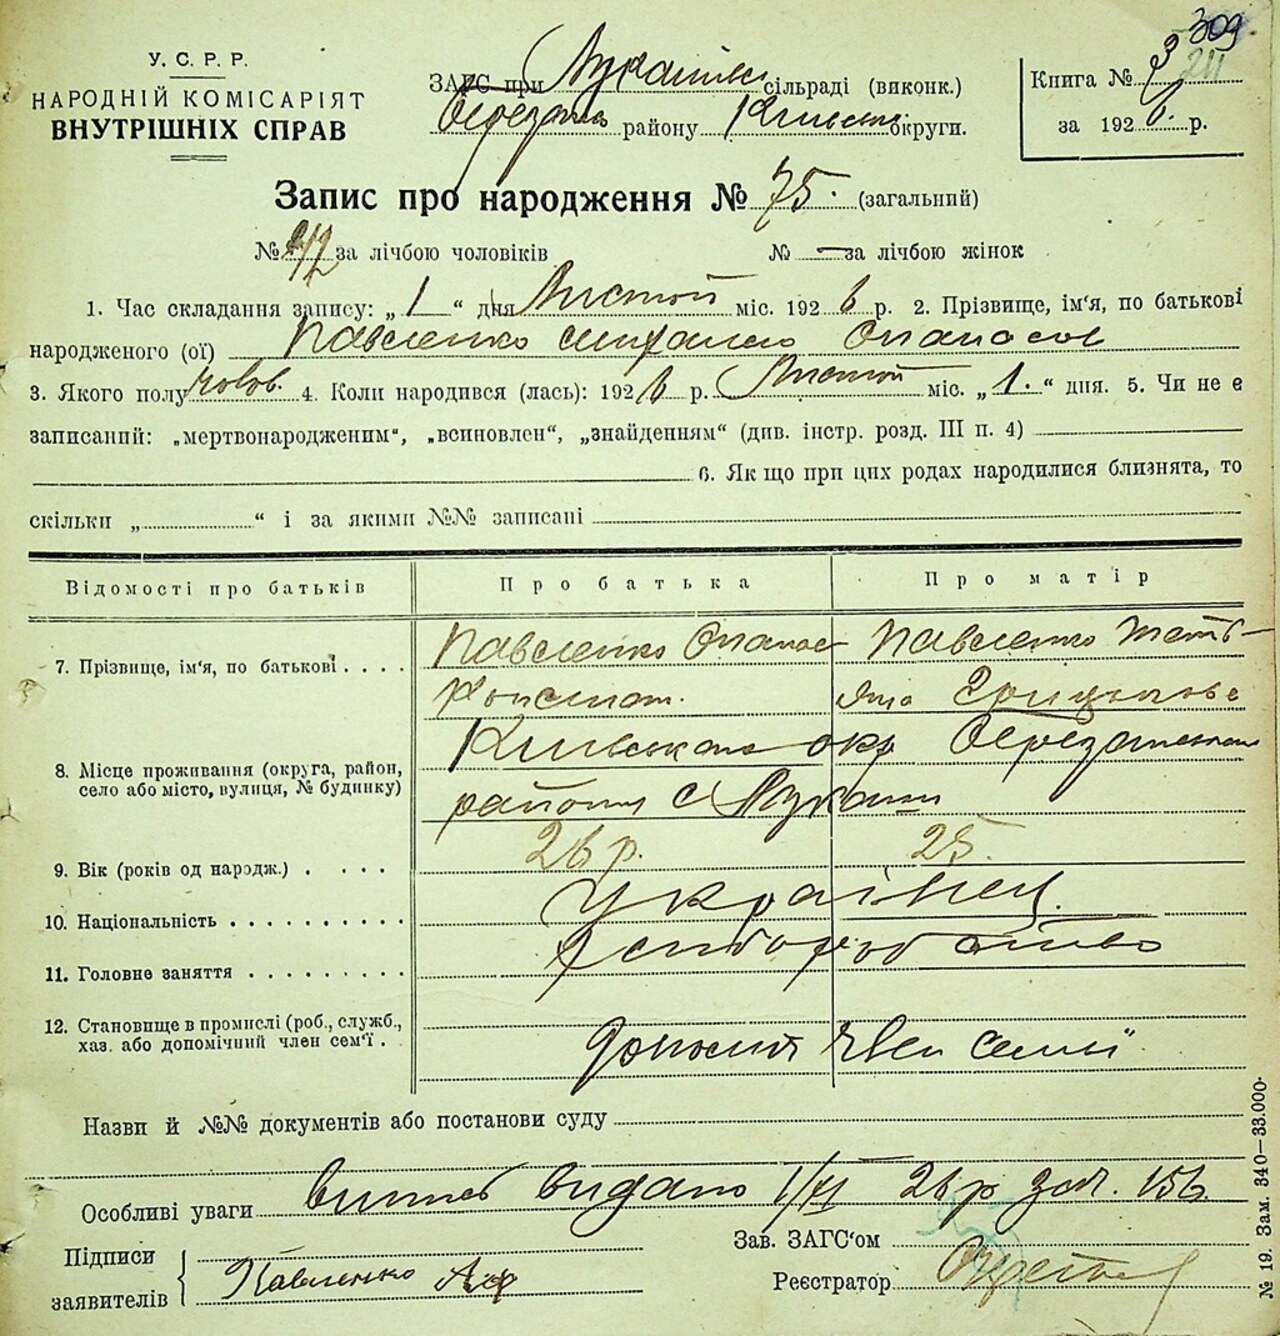 309
У. С. Р. Р.
НАРОДНІЙ КОМІСАРІЯТ
ВНУТРІШНІХ СПРАВ
ЗАГС при Лукашівс сільраді (виконк.)
Березансь району Київськ округи.
Книга № 3
за 1926 р.
Запис про народження № 75. (загальний)
№ 42 за лічбою чоловіків № — за лічбою жінок
1. Час складання запису: „ 1 “ дня Листоп міс. 1926 р. 2. Прізвище, ім‘я, по батькові
народженого (ої) Павленко Михайло Опанасов
3. Якого полу чолов. 4. Коли народився (лась): 1926 р. Листоп міс. „ 1. “ дня. 5. Чи не є
записаний: „мертвонародженим“, „всиновлен“, „знайденням“ (див. інстр. розд. III п. 4)
6. Як що при цих родах народилися близнята, то
скільки „ “ і за якими №№ записані
Відомості про батьків Про батька Про матір
7. Прізвище, ім‘я, по батькові . . . . Павленко Опанас Павленко Теть-
Констат. яна Грицьков
8. Місце проживання (округа, район, село або місто, вулиця, № будинку) Київська окр Березанськ
району с Лукаши
9. Вік (років од народж.) . . . . 26 р. 25.
10. Національність . . . . . . . . . . Українец.
11. Головне заняття . . . . . . . . . Хліборобство
12. Становище в промислі (роб., служб., хаз. або допомічний член сем‘ї . допомич член семії
Назви й №№ документів або постанови суду
Особливі уваги витяг видано 1/XI 26 р за ч. 156
Підписи
заявителів Павленко Аф
Зав. ЗАГС‘ом
Реєстратор
№ 19. Зам. 340—33.000.